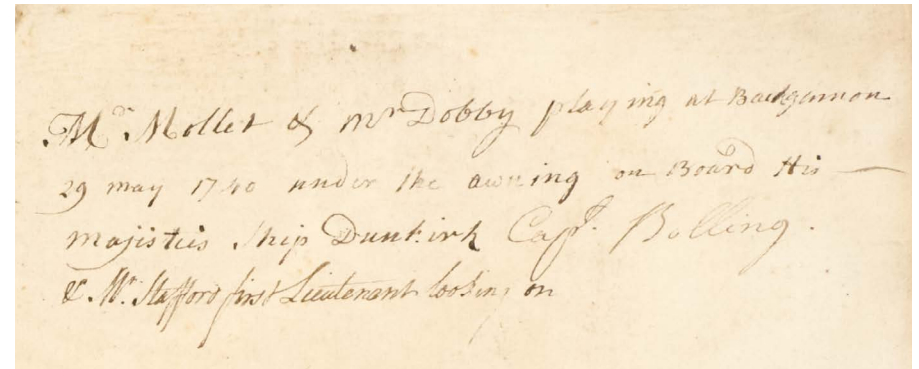 Mr. Mollet & Mr Dobby playing at Backgamon
29 may 1740 under the awning on Board His
majisties Ship Dunkirk Capt. Bolling.
& Mr. Stafford first Lieutenant looking on